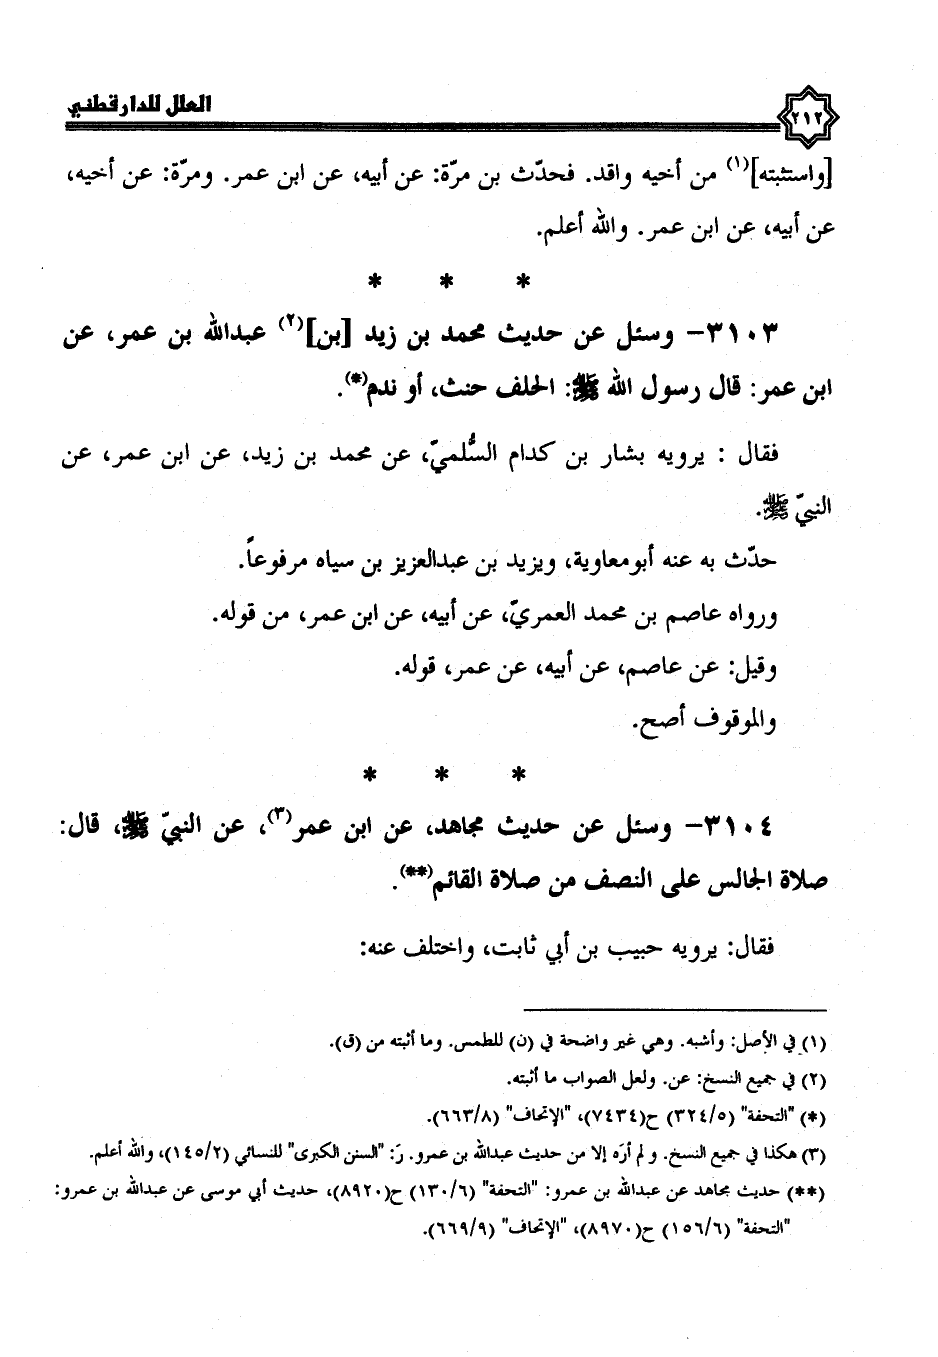 العلل للدارقطني
٢١٢
[واستثبته](١) من أخيه واقد. فحدّث بن مرّة: عن أبيه، عن ابن عمر. ومرّة: عن أخيه،
عن أبيه، عن ابن عمر. والله أعلم.
* * *
٣١٠٣- وسئل عن حديث محمد بن زيد [بن](٢) عبدالله بن عمر، عن
ابن عمر: قال رسول الله ﷺ: الحلف حنث، أو ندم(*).
فقال : يرويه بشار بن كدام السُّلميّ، عن محمد بن زيد، عن ابن عمر، عن
النبيّ ﷺ.
حدّث به عنه أبومعاوية، ويزيد بن عبدالعزيز بن سياه مرفوعاً.
ورواه عاصم بن محمد العمريّ، عن أبيه، عن ابن عمر، من قوله.
وقيل: عن عاصم، عن أبيه، عن عمر، قوله.
والموقوف أصح.
* * *
٣١٠٤- وسئل عن حديث مجاهد، عن ابن عمر(٣)، عن النبيّ ﷺ، قال:
صلاة الجالس على النصف من صلاة القائم(**).
فقال: يرويه حبيب بن أبي ثابت، واختلف عنه:
(١) في الأصل: وأشبه. وهي غير واضحة في (ن) للطمس. وما أثبته من (ق).
(٢) في جميع النسخ: عن. ولعل الصواب ما أثبته.
(*) "التحفة" (٣٢٤/٥) ح(٧٤٣٤)، "الإتحاف" (٦٦٣/٨).
(٣) هكذا في جميع النسخ. و لم أرَه إلا من حديث عبدالله بن عمرو. رَ: "السنن الكبرى" للنسائي (١٤٥/٢)، والله أعلم.
(**) حديث مجاهد عن عبدالله بن عمرو: "التحفة" (١٣٠/٦) ح(٨٩٢٠)، حديث أبي موسى عن عبدالله بن عمرو:
"التحفة" (١٥٦/٦) ح(٨٩٧٠)، "الإتحاف" (٦٦٩/٩).